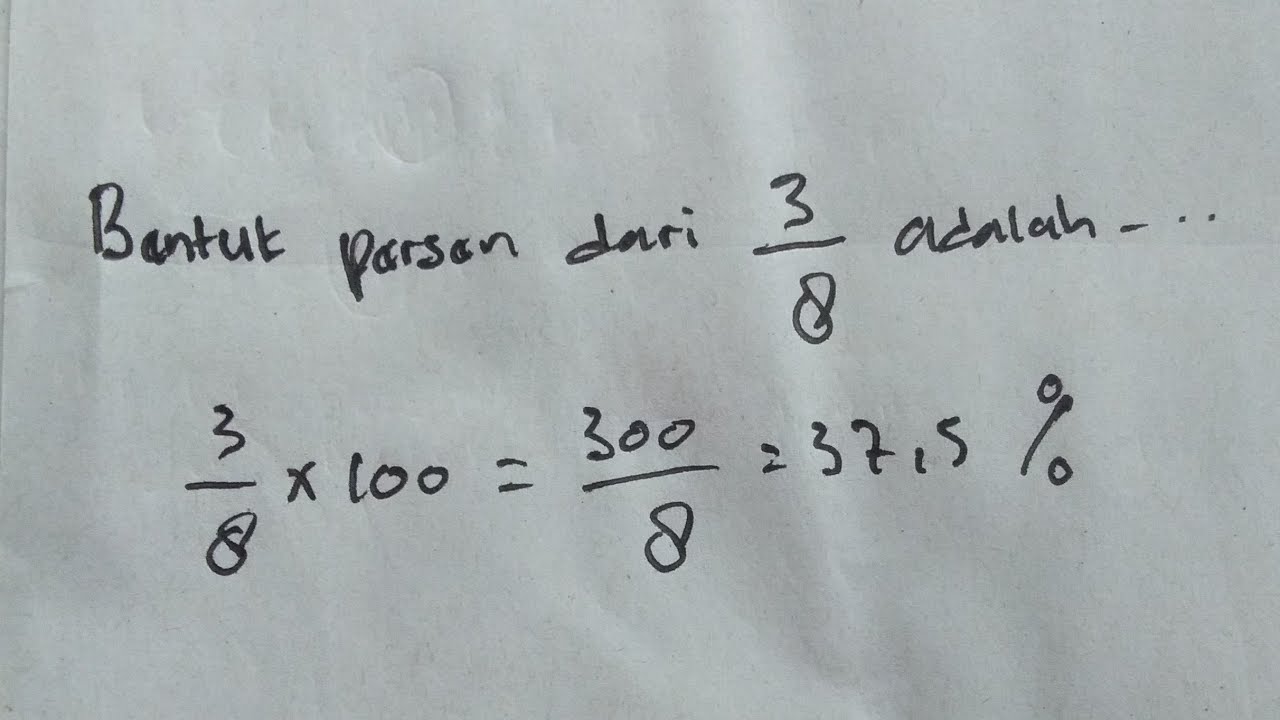 Bentuk persen dari 3/8 adalah - ..
3/8 x 100 = 300/8 = 37,5 %